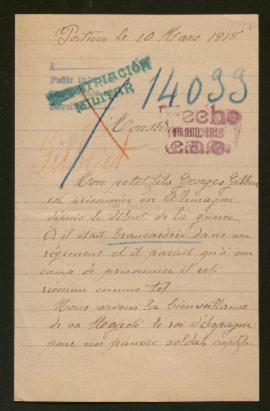 Poitiers le 10 Mars 1918
A
Pedir in
REPATRIACIÓN
MILITAR
14099
Hecho
JUL. 1918
Gilbert
Monsieur
Mon petit fils Georges Gilbert
est prisonnier en Allemagne
depuis le début de la guerre
il était brancardier dans son
régiment et il parait qu'à son
camp de prisonnier il est
reconnu comme tel
Nous avons la bienveillance
de sa Majesté le roi d'Espagne
pour nos pauvres soldats captifs